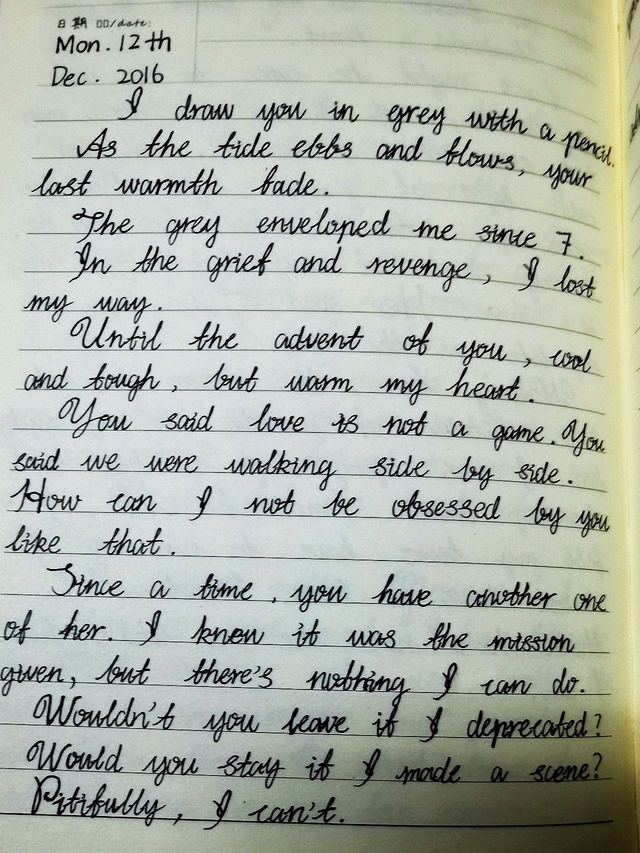 日期 00/date:
Mon. 12th
Dec. 2016
I draw you in grey with a pencil.
As the tide ebbs and flows, your
last warmth fade.
The grey enveloped me since 7.
In the grief and revenge, I lost
my way.
Until the advent of you, cool
and tough, but warm my heart.
You said love is not a game. You
said we were walking side by side.
How can I not be obsessed by you
like that.
Since a time, you have another one
of her. I knew it was the mission
given, but there's nothing I can do.
Wouldn't you leave if I deprecated?
Would you stay if I made a scene?
Pitifully, I can't.